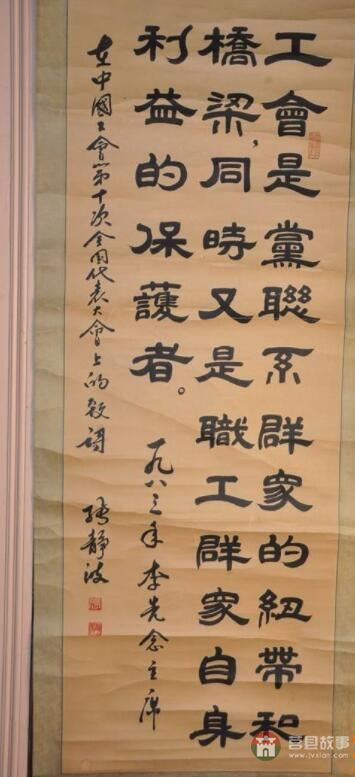 工會是黨聯系群衆的紐帶和
橋梁,同時又是職工群衆自身
利益的保護者。
一九八三年李先念主席
在中國工會第十次全國代表大會上的致詞
靜波
莒县故事
www.jvxian.com